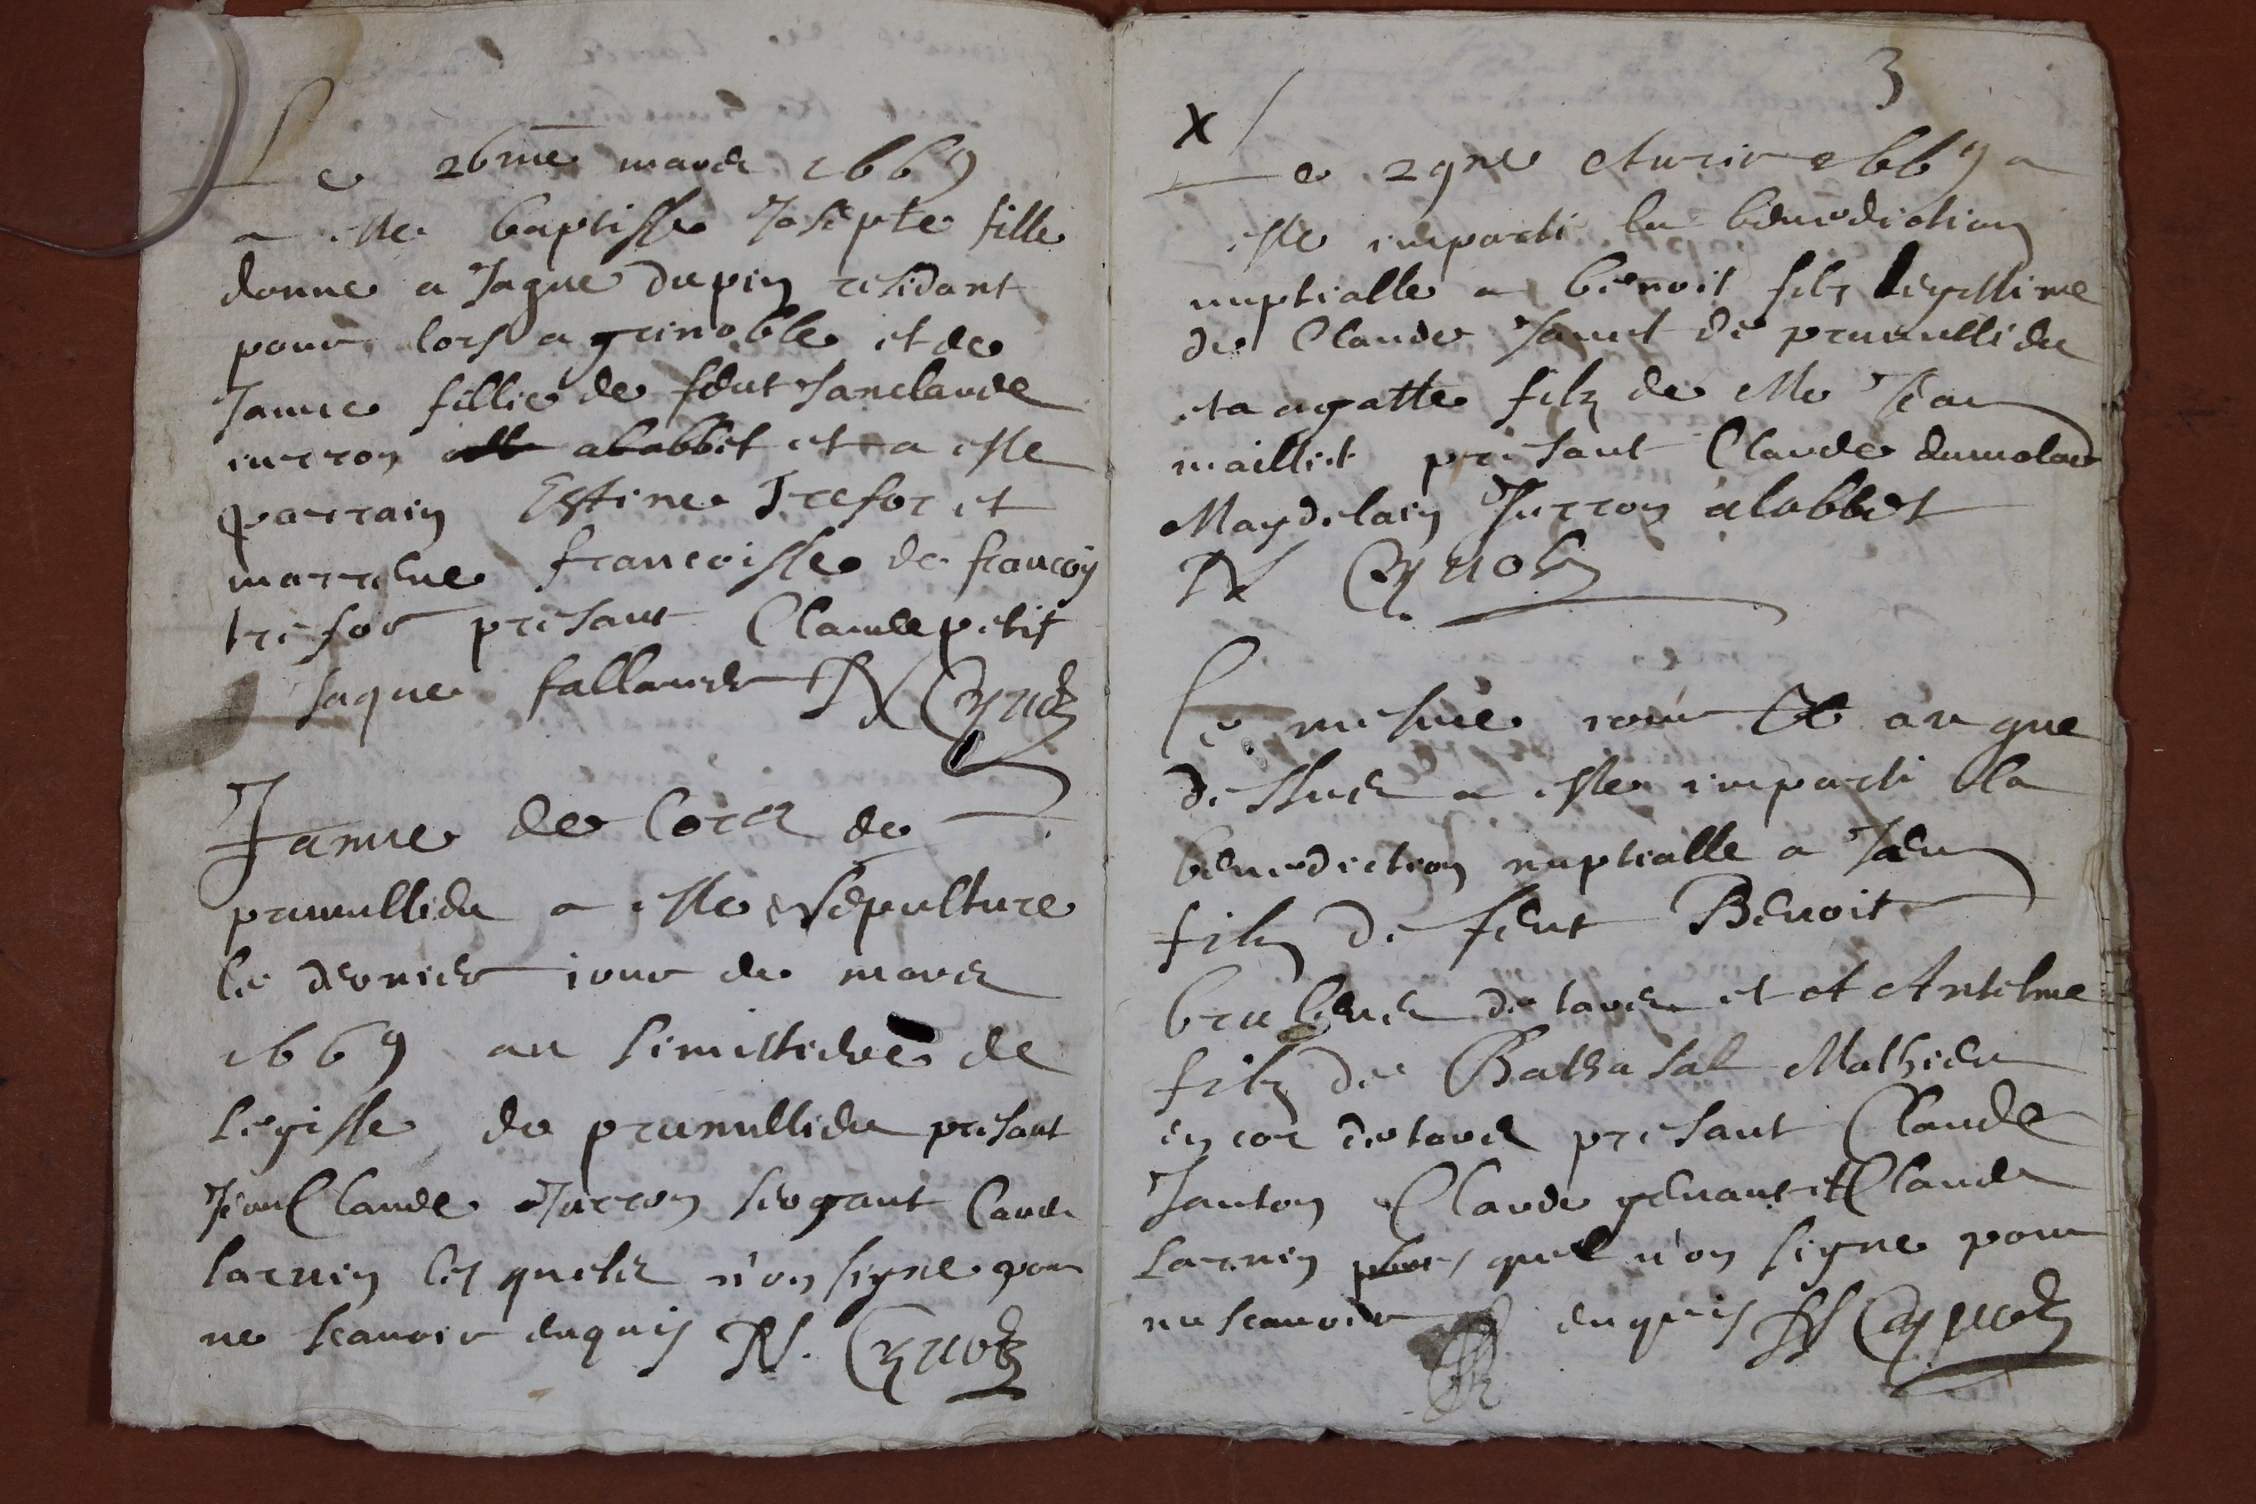 Le 26me mars 1669
a este baptisse Josepte fille
donne a Jaque dupin residant
pour lors a grinoble et de
Janne fillie de feut Janclaude
iurron alabbet et a este
parrain Estine Trefor et
marrene francoisse de francoy
trefor presant Claude petit
Jaque fallauer N
Janne de Corz de
prunullieu a este sepulture
le dernier iour de mars
1669 au simistiere de
legisse de prunullieu presant
Jean Claude Jurron sergant Claude
larrin lesquels n'on signe pour
ne scavoir enquis N.
3
X
Le 29me Avril 1669 a
este imparti la benediction
nuptialle a benoit filz legittime
de Claude Janet de prunullieu
et a agatte filz de Me Jean
maillet presant Claude dumolar
Maydelain Jurron alabbet
N
Le mesme iour et an que
dessus a este imparti la
benediction nuptialle a Jean
filz de feut Benoit
de laver et A Antelme
filz de Balthasal Mathieu
encor de laver presant Claude
Janton Claude et Claude
larrin quel n'on signe pour
ne scavoir enquis N